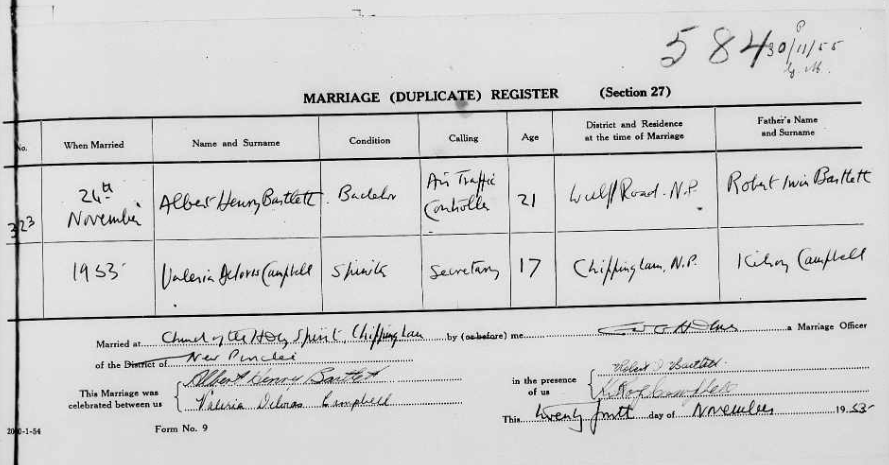 584 30/11/55
MARRIAGE (DUPLICATE) REGISTER (Section 27)
No. When Married Name and Surname Condition Calling Age District and Residence at the time of Marriage Father's Name and Surname
323 24th November Albert Henry Bartlett Bachelor Air Traffic Controller 21 Wulff Road. N.P. Robert Bartlett
1955 Valeria Delores Campbell Spinster Secretary 17 Chippingham, N.P. Campbell
Married at Church of the Holy Spirit, Chippingham by (or before) me a Marriage Officer
of the District of New Providence
This Marriage was celebrated between us Albert Henry Bartlett
Valeria Delores Campbell
in the presence of us Robert Bartlett
Campbell
This twenty fourth day of November 1955
-1-54 Form No. 9